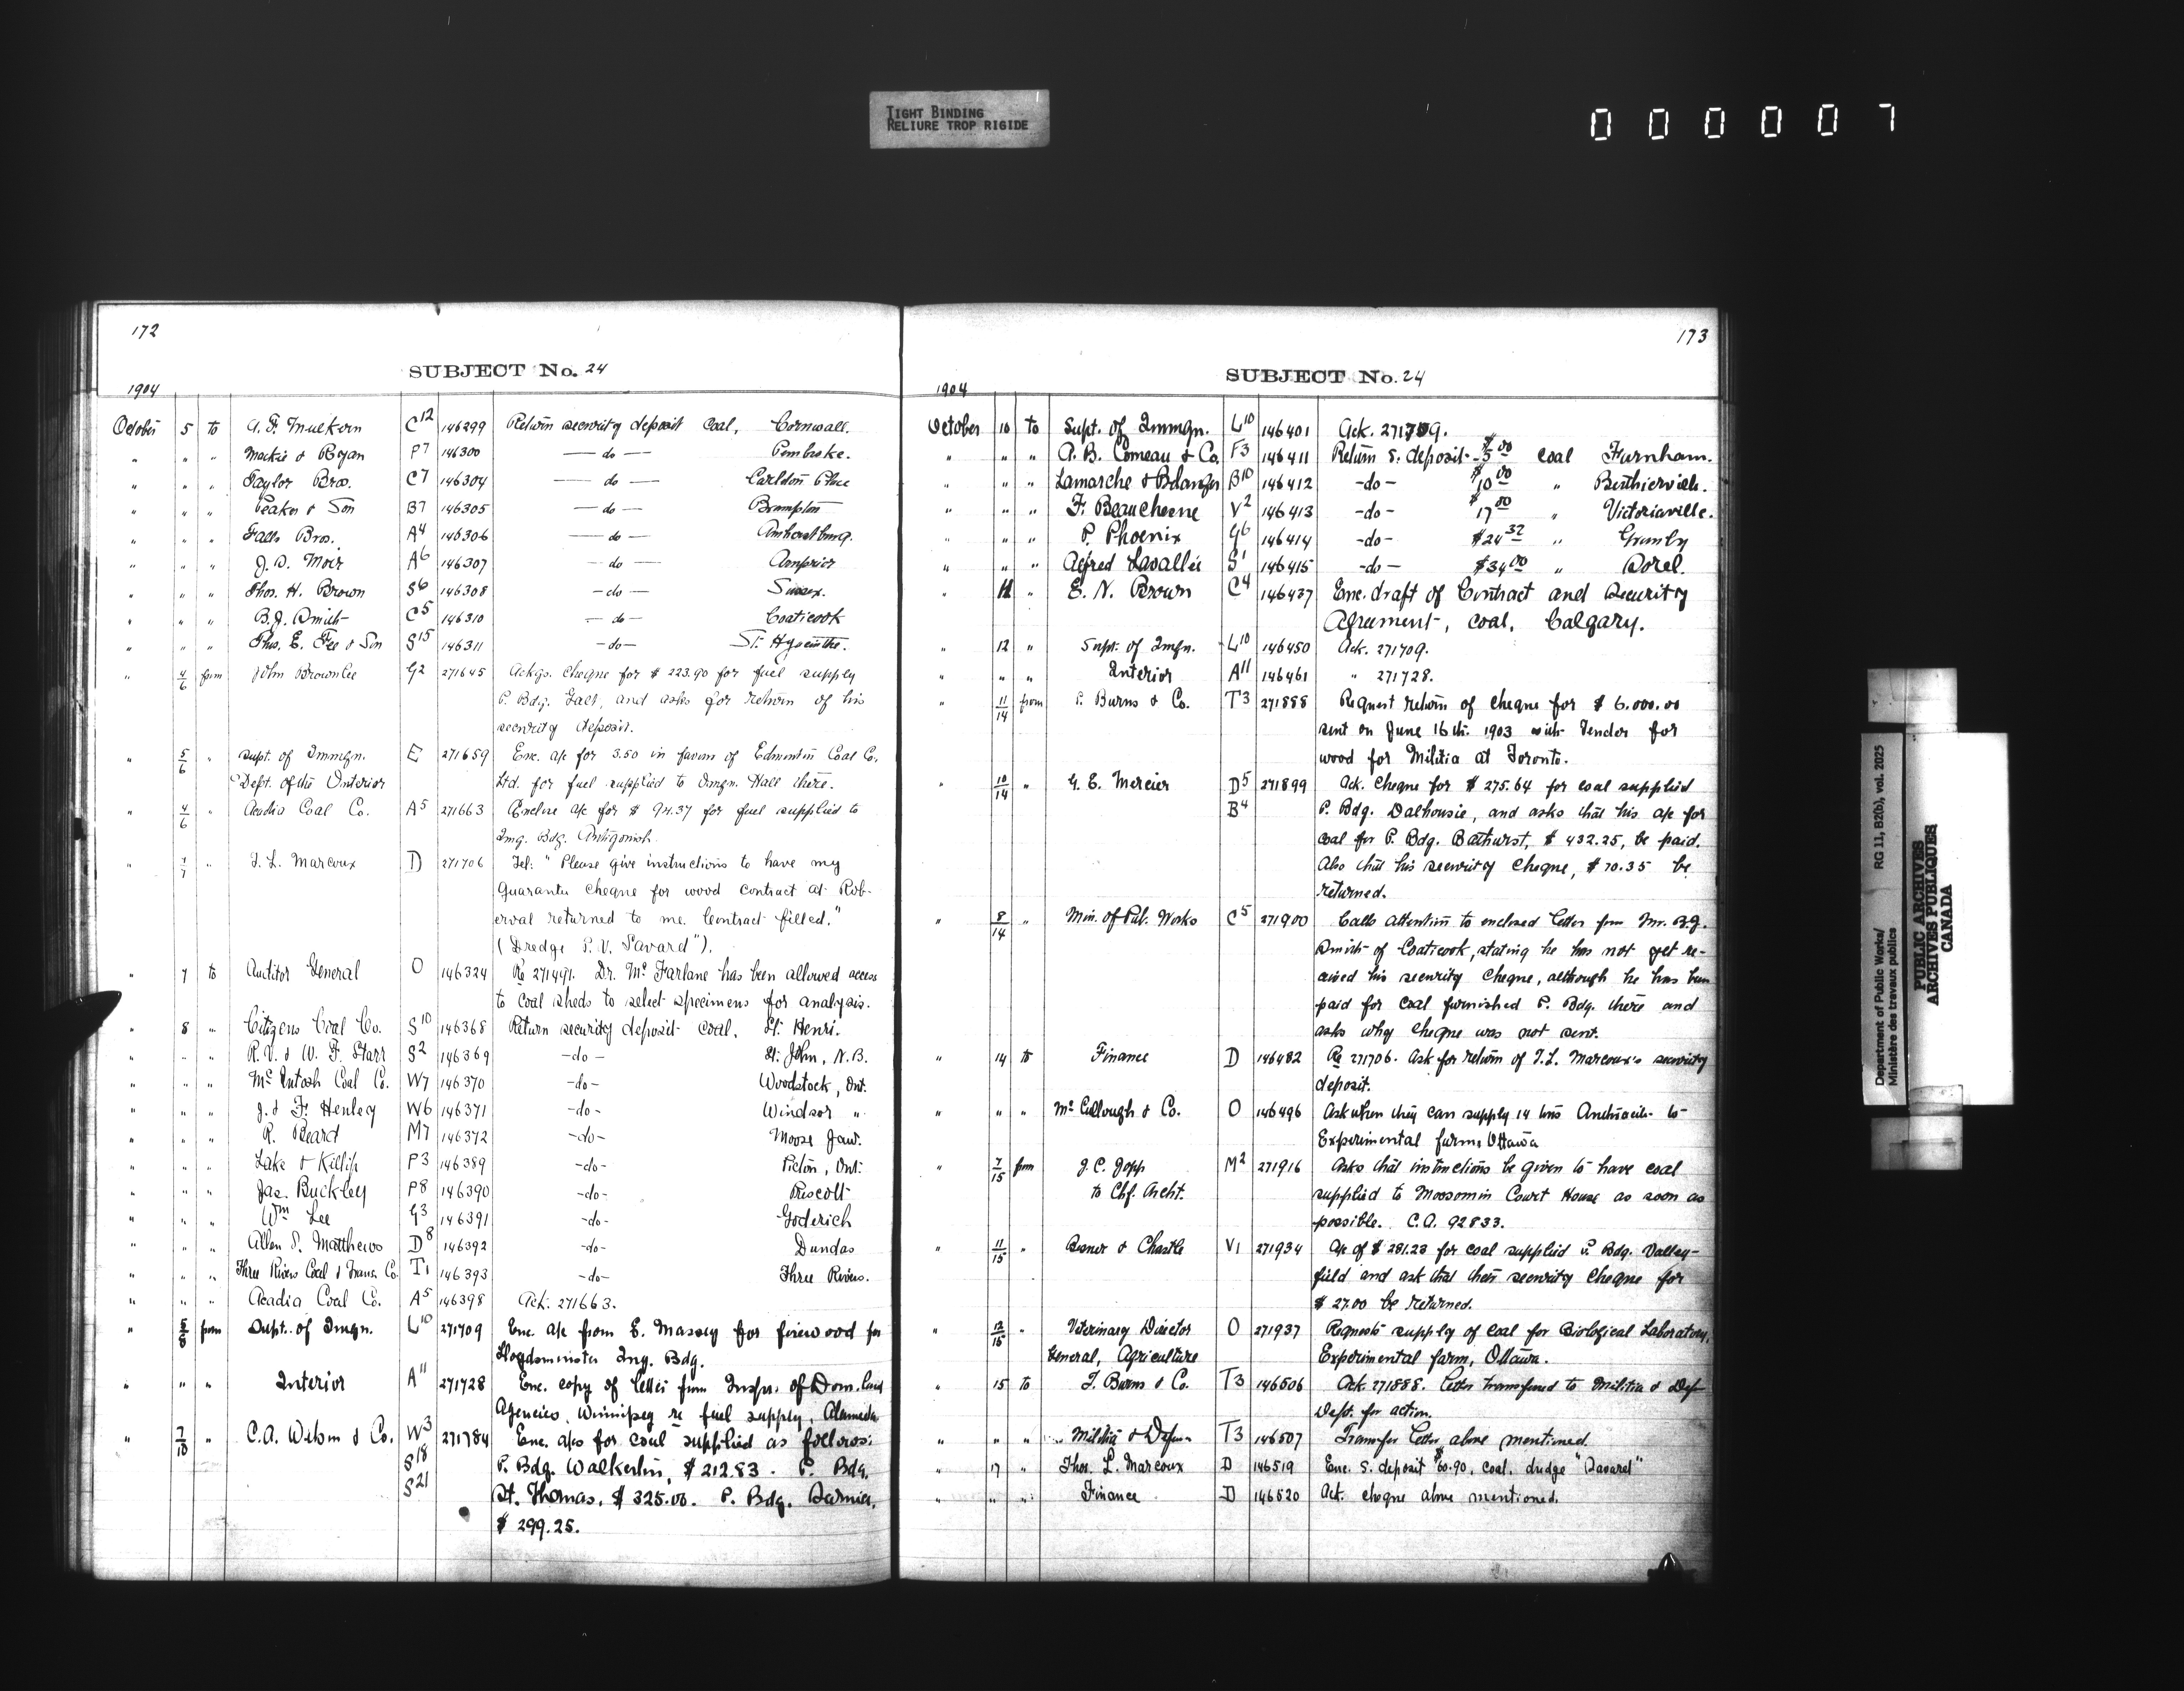 TIGHT BINDING
RELIURE TROP RIGIDE
000007
172
SUBJECT No. 24
1904
October 5 to A. F. Mulkern C12 146299 Return security deposit Coal, Cornwall.
" " " Mackie & Ryan P7 146300 — do — Pembroke.
" " " Taylor Bros. C7 146304 — do — Carleton Place
" " " Peaker & Son B7 146305 — do — Brampton
" " " Falls Bros. A4 146306 — do — Amherstburg.
" " " J. D. Moir A6 146307 — do — Arnprior
" " " Thos. H. Brown S6 146308 — do — Sussex.
" " " B. J. Smith C5 146310 — do — Coaticook
" " " Thos. E. Fee & Son S15 146311 — do — St. Hyacinthe.
" 4/6 from John Brownlee G2 271645 Ackgs. cheque for $ 223.90 for fuel supply
P. Bdg. Galt, and asks for return of his
security deposit.
" 5/6 " Supt. of Immgn. E 271659 Enc. a/c for 3.50 in favour of Edmonton Coal Co.
Dept. of the Interior Ltd. for fuel supplied to Immgn. Hall there.
" 4/6 " Acadia Coal Co. A5 271663 Enclose a/c for $ 94.37 for fuel supplied to
Img. Bdg. Antigonish.
" 7/7 " T. L. Marcoux D 271706 Tel: " Please give instructions to have my
Guarantee cheque for wood contract at Rob-
erval returned to me. Contract filled."
(Dredge P. V. Savard").
" 7 to Auditor General O 146324 Re 271491. Dr. McFarlane has been allowed access
to Coal sheds to select specimens for analysis.
" 8 " Citizens Coal Co. S10 146368 Return security deposit Coal. St. Henri.
" " " R. P. & W. F. Starr S2 146369 -do- St. John, N.B.
" " " McIntosh Coal Co. W7 146370 -do- Woodstock, Ont.
" " " J. & F. Henley W6 146371 -do- Windsor "
" " " R. Beard M7 146372 -do- Moose Jaw.
" " " Lake & Killip P3 146389 -do- Picton, Ont.
" " " Jas. Buckley P8 146390 -do- Prescott
" " " Wm Lee G3 146391 -do- Goderich
" " " Allen S. Matthews D8 146392 -do- Dundas
" " " Three Rivers Coal & Trans. Co. T1 146393 -do- Three Rivers.
" " " Acadia Coal Co. A5 146398 Ack. 271663.
" 5/8 from Supt. of Imgn. L10 271709 Enc. a/c from E. Massey for firewood for
Lloydminster Img. Bdg.
" " " Interior A11 271728 Enc. copy of letter from Inspr. of Dom. Land
Agencies, Winnipeg re fuel supply, Alameda
" 7/10 " C. A. Wilson & Co. W3 271784 Enc. a/cs for coal supplied as follows:
S18 P. Bdg. Walkerton, $ 212.83. P. Bdg.
S21 St. Thomas, $ 325.00. P. Bdg. Sarnia,
$ 299.25.
173
SUBJECT No. 24
1904
October 10 to Supt. of Immgn. L10 146401 Ack. 271709.
" " " A. B. Comeau & Co. F3 146411 Return S. deposit $5.00 coal Farnham.
" " " Lamarche & Belanger B10 146412 -do- $10.00 " Berthierville.
" " " F. Beauchesne V2 146413 -do- $17.00 " Victoriaville.
" " " P. Phoenix G6 146414 -do- $24.32 " Granby
" " " Alfred Lavallée S1 146415 -do- $34.00 " Sorel.
" 11 " E. N. Brown C4 146437 Enc. draft of Contract and Security
Agreement, coal, Calgary.
" 12 " Supt. of Imgn. L10 146450 Ack. 271709.
" " " Interior A11 146461 " 271728.
" 11/14 from P. Burns & Co. T3 271888 Request return of cheque for $ 6.000.00
sent on June 16th. 1903 with Tender for
wood for Militia at Toronto.
" 10/14 " G. E. Mercier D5 271899 Ack. cheque for $ 275.64 for coal supplied
B4 P. Bdg. Dalhousie, and asks that his a/c for
coal for P. Bdg. Bathurst, $ 432.25, be paid.
Also that his security cheque, $ 70.35 be
returned.
" 8/14 " Min. of Pub. Works C5 271900 Calls attention to enclosed letter from Mr. B. J.
Smith of Coaticook, stating he has not yet re-
ceived his security cheque, although he has been
paid for coal furnished P. Bdg. there and
asks why cheque was not sent.
" 14 to Finance D 146482 Re 271706. Ask for return of T. L. Marcoux's security
deposit.
" " " McCullough & Co. O 146496 Ask when they can supply 14 tons Anthracite to
Experimental farm, Ottawa
" 7/15 from J. C. Jopp M2 271916 Asks that instructions be given to have coal
to Chf. Archt. supplied to Moosomin Court House as soon as
possible. C.A. 92833.
" 11/15 " & V1 271934 a/c of $ 281.28 for coal supplied P. Bdg. Valley-
field and ask that their security cheque for
$ 27.00 be returned.
" 12/15 " Veterinary Director O 271937 Requests supply of coal for Biological Laboratory,
General, Agriculture Experimental farm, Ottawa.
" 15 to P. Burns & Co. T3 146506 Ack. 271888. Letter transferred to Militia & Def-
Dept. for action.
" " " Militia & Defence T3 146507 Transfer letter above mentioned.
" 17 " Thos. L. Marcoux D 146519 Enc. S. deposit $60.90, coal, dredge "Savard"
" " " Finance D 146520 Ack. cheque above mentioned.
Department of Public Works/ RG 11, B2(b), vol. 2025
Ministère des travaux publics
PUBLIC ARCHIVES
ARCHIVES PUBLIQUES
CANADA